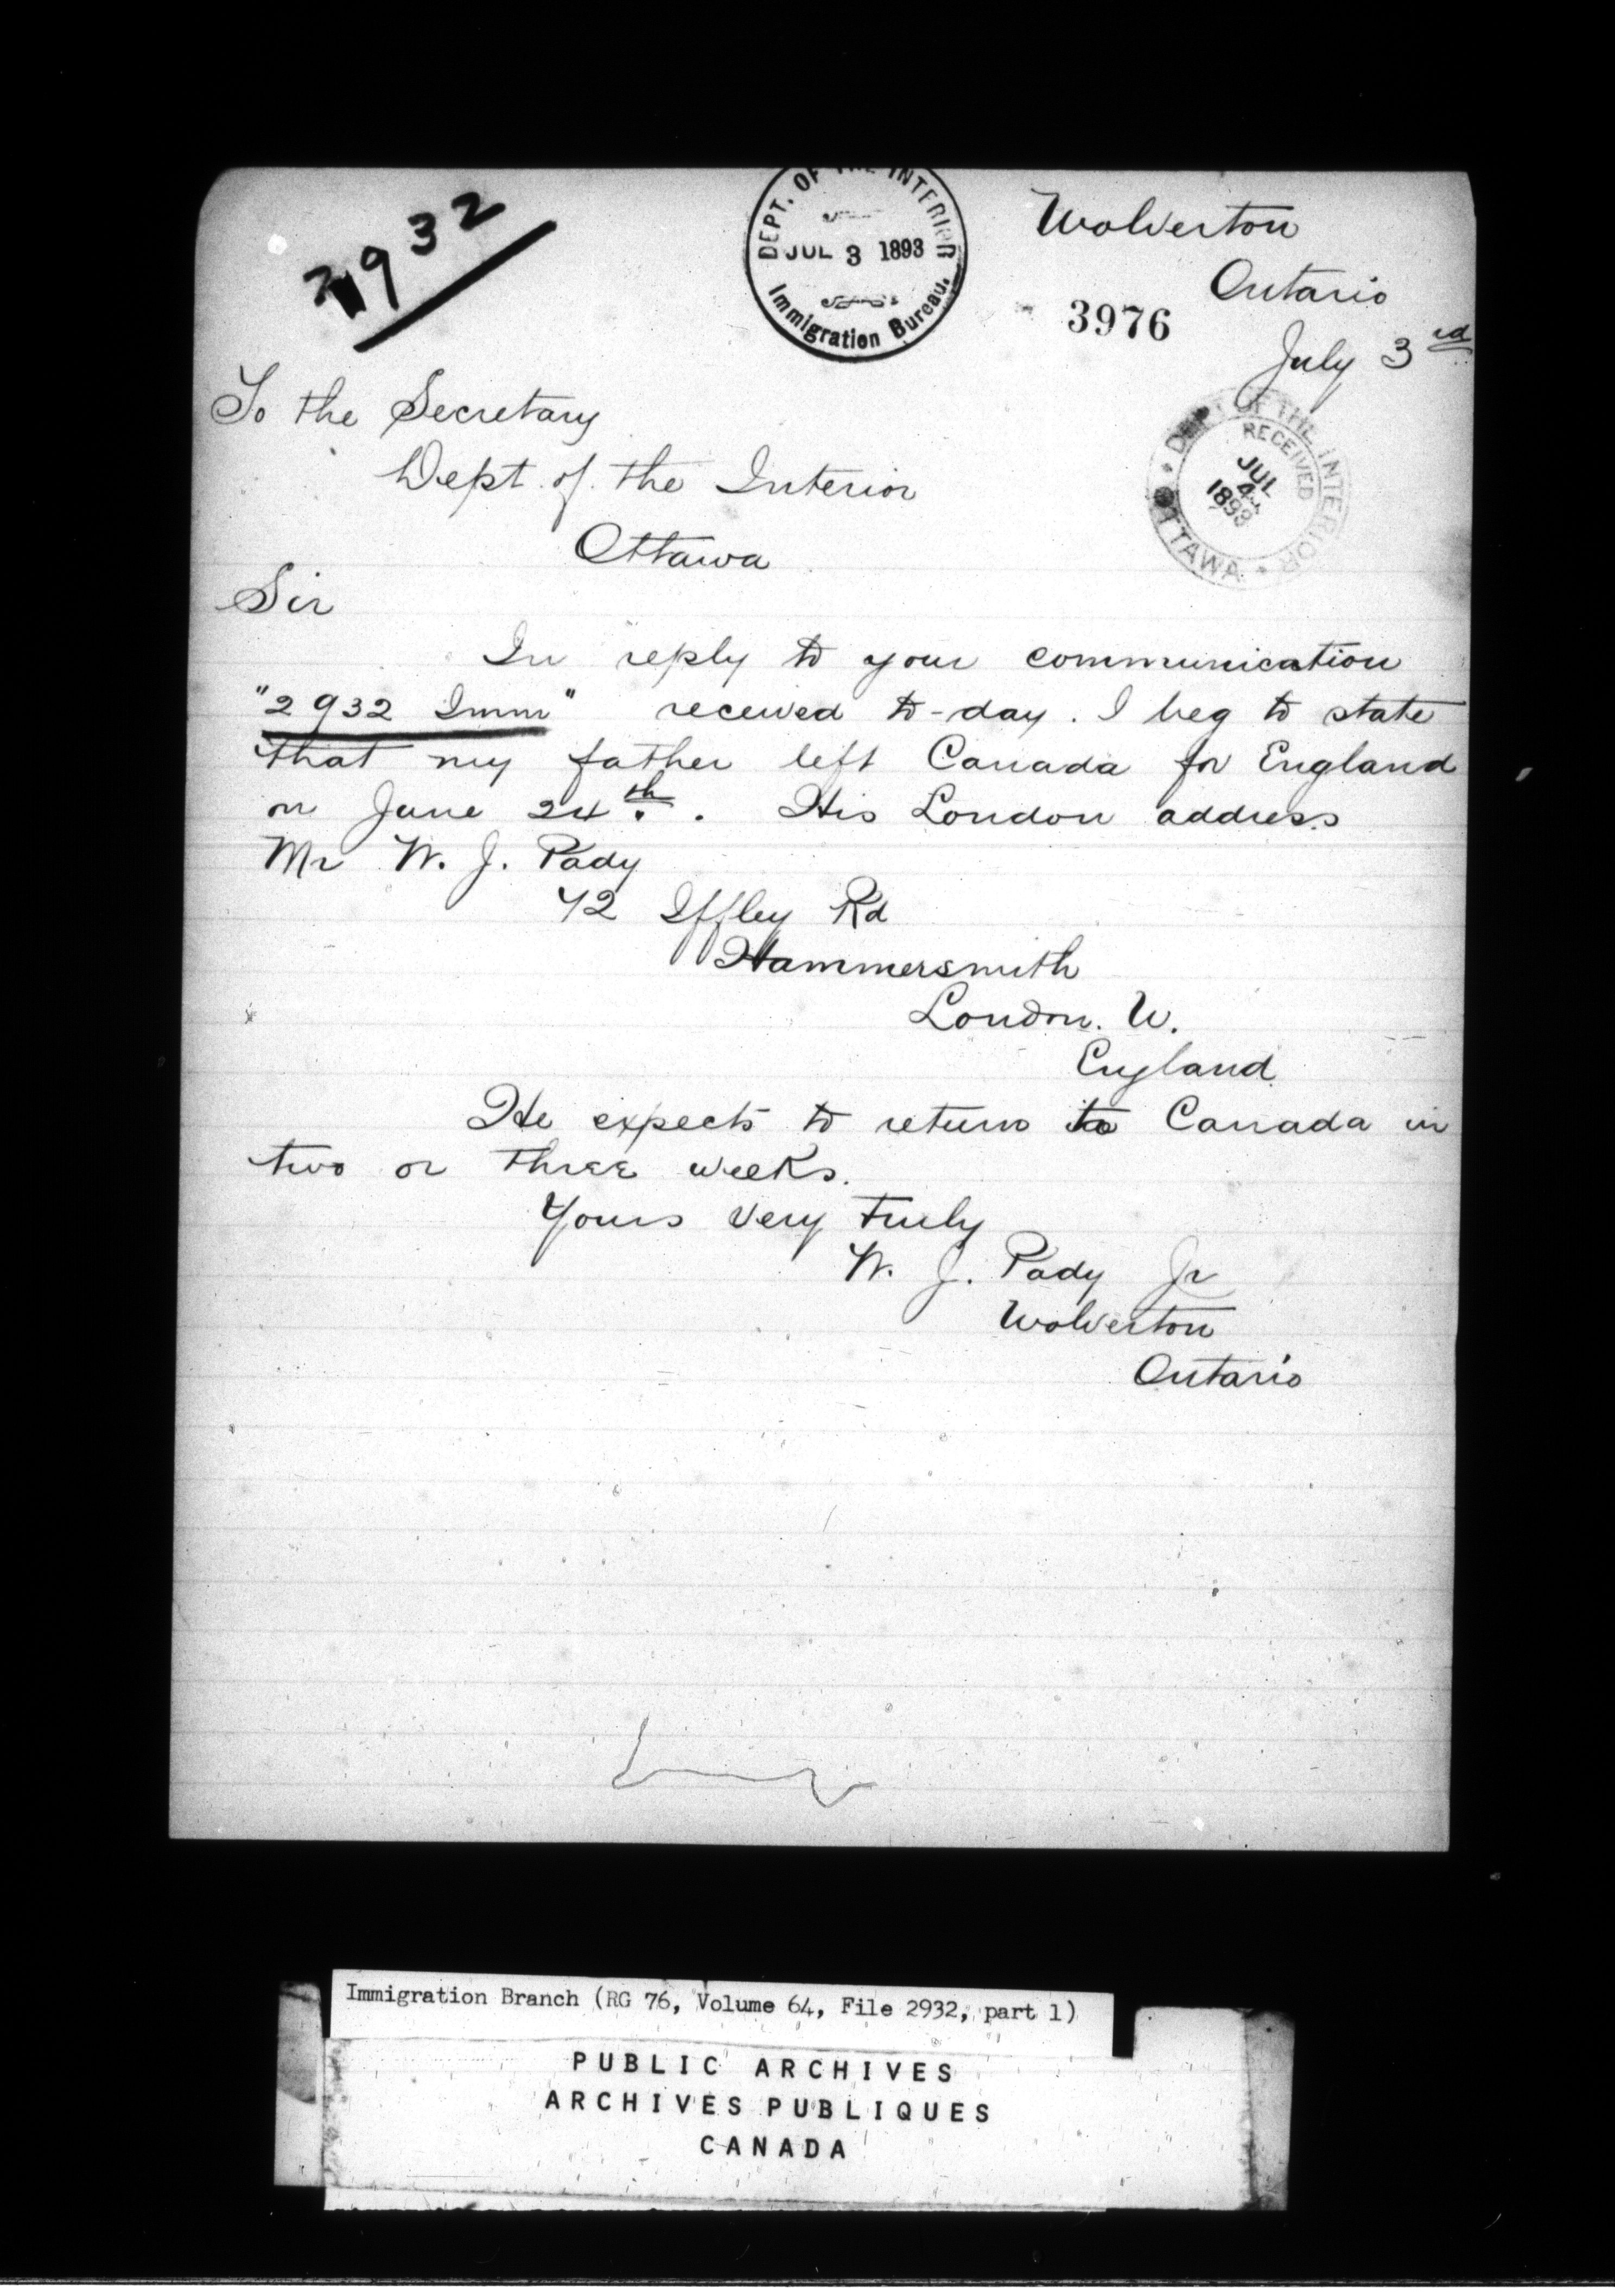 2932
DEPT. OF THE INTERIOR
JUL 3 1893
Immigration Bureau.
Wolverton
Ontario
3976
July 3rd
DEPT OF THE INTERIOR
RECEIVED
JUL
4
1893
OTTAWA
To the Secretary
Dept. of the Interior
Ottawa
Sir
In reply to your communication
"2932 Imm" received to-day. I beg to state
that my father left Canada for England
on June 24th. His London address
Mr W. J. Pady
42 Iffley Rd
Hammersmith
London. W.
England
He expects to return to Canada in
two or three weeks.
Yours very truly
W. J. Pady Jr
Wolverton
Ontario
Immigration Branch (RG 76, Volume 64, File 2932, part 1)
PUBLIC ARCHIVES
ARCHIVES PUBLIQUES
CANADA